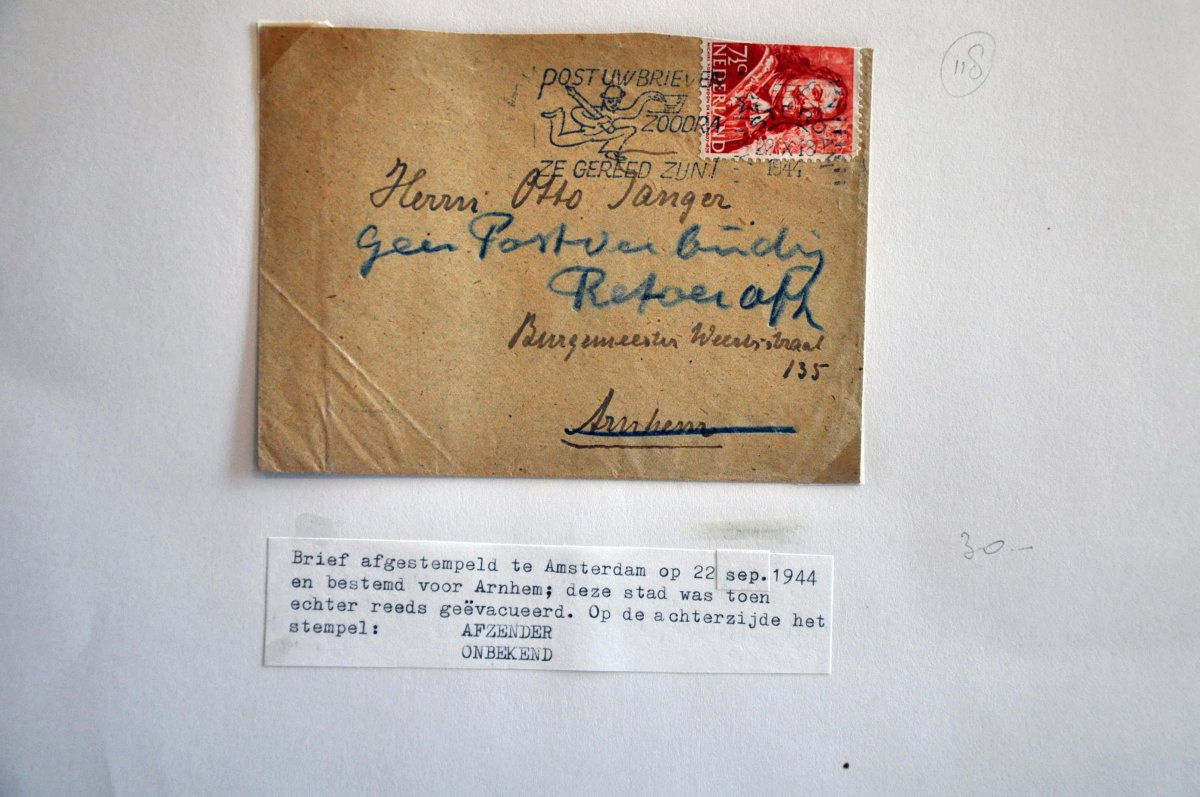 118
POST UW BRIEVEN
ZOODRA
ZE GEREED ZIJN!
7½ c
NEDERLAND
22.X.18
1944
Herrn Otto Tanger
geen Postverbinding
Retour afz
Burgemeester Weertsstraat
135
Arnhem
30-
Brief afgestempeld te Amsterdam op 22 sep.1944
en bestemd voor Arnhem; deze stad was toen
echter reeds geëvacueerd. Op de achterzijde het
stempel: AFZENDER
ONBEKEND